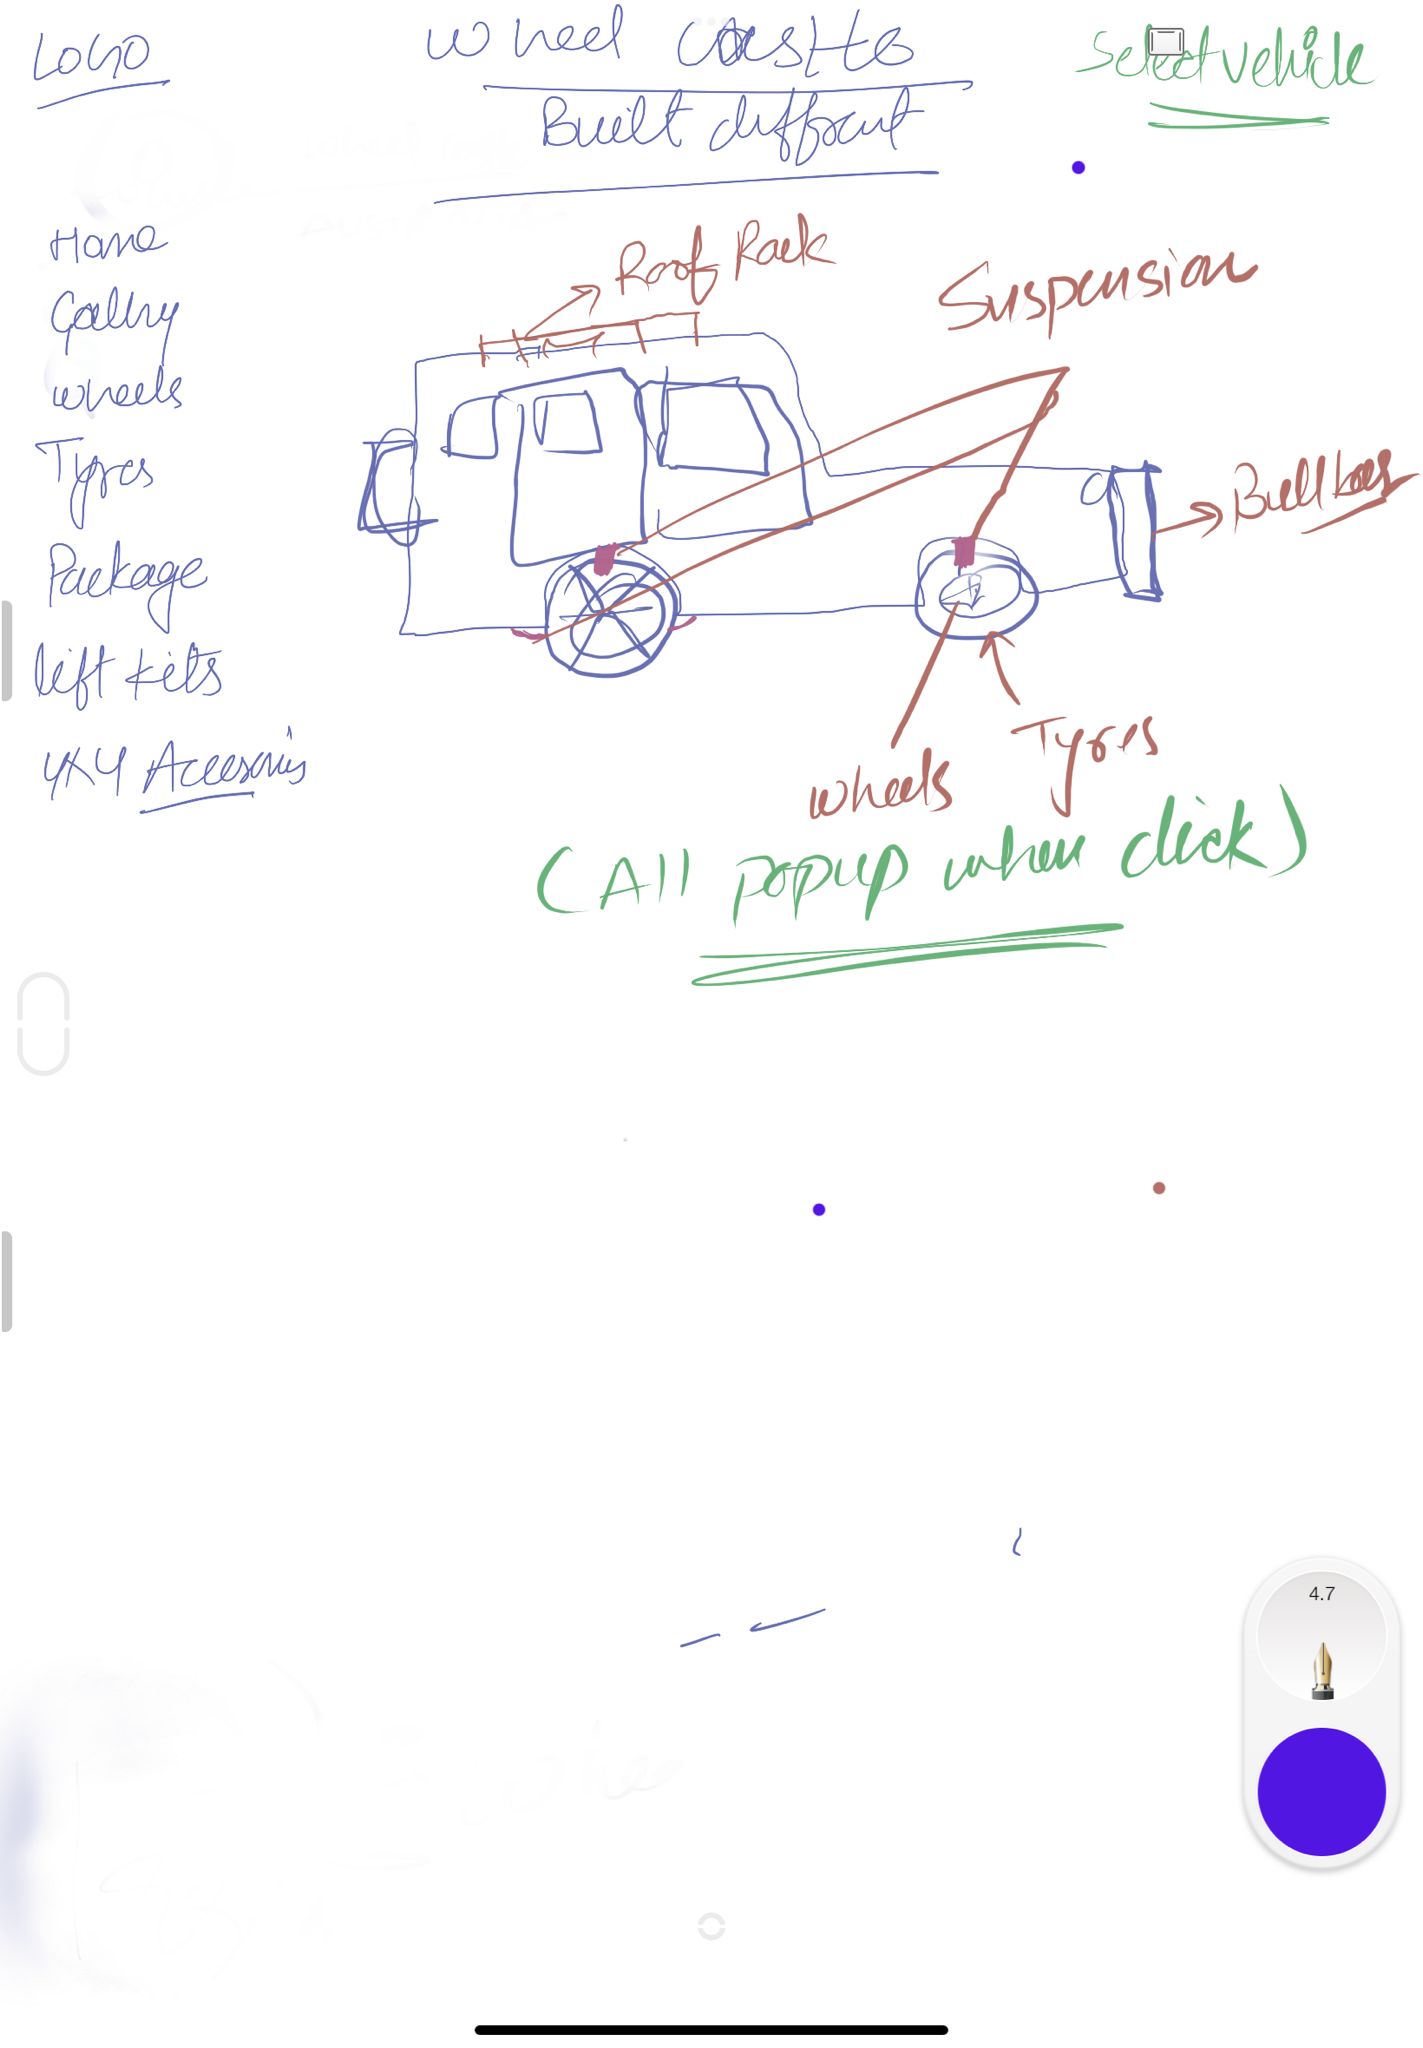 LOGO
Wheel
Select vehicle
Built different
Home
Gallery
wheels
Tyres
Package
lift kits
4x4 Accessories
Roof Rack
Suspension
Bull bars
wheels
Tyres
(All popup when click)
4.7